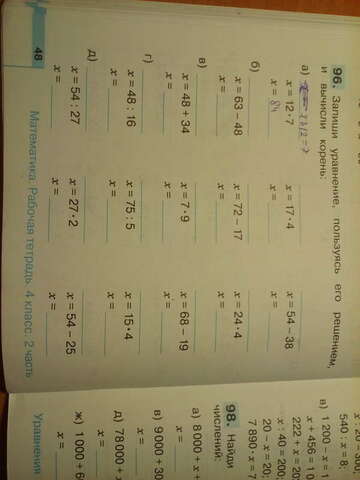 96. Запиши уравнение, пользуясь его решением,
и вычисли корень:
а)
x = 12 · 7 x = 17 · 4 x = 54 – 38
x = 84 x = x =
б)
x = 63 – 48 x = 72 – 17 x = 24 · 4
x = x = x =
в)
x = 48 + 34 x = 7 · 9 x = 68 – 19
x = x = x =
г)
x = 48 : 16 x = 75 : 5 x = 15 · 4
x = x = x =
д)
x = 54 : 27 x = 27 · 2 x = 54 – 25
x = x = x =
48 Математика. Рабочая тетрадь. 4 класс. 2 часть
540 : x = 8;
в) 1 200 – x = 1
x + 456 = 1 0
222 + x = 20
x : 40 = 200;
20 – x = 20;
7 890 · x = 7
98. Найди
числений:
а) 8 000 + x
x =
в) 9 000 + 30
x =
д) 78 000 +
x =
ж) 1 000 + 6
x =
Уравнения